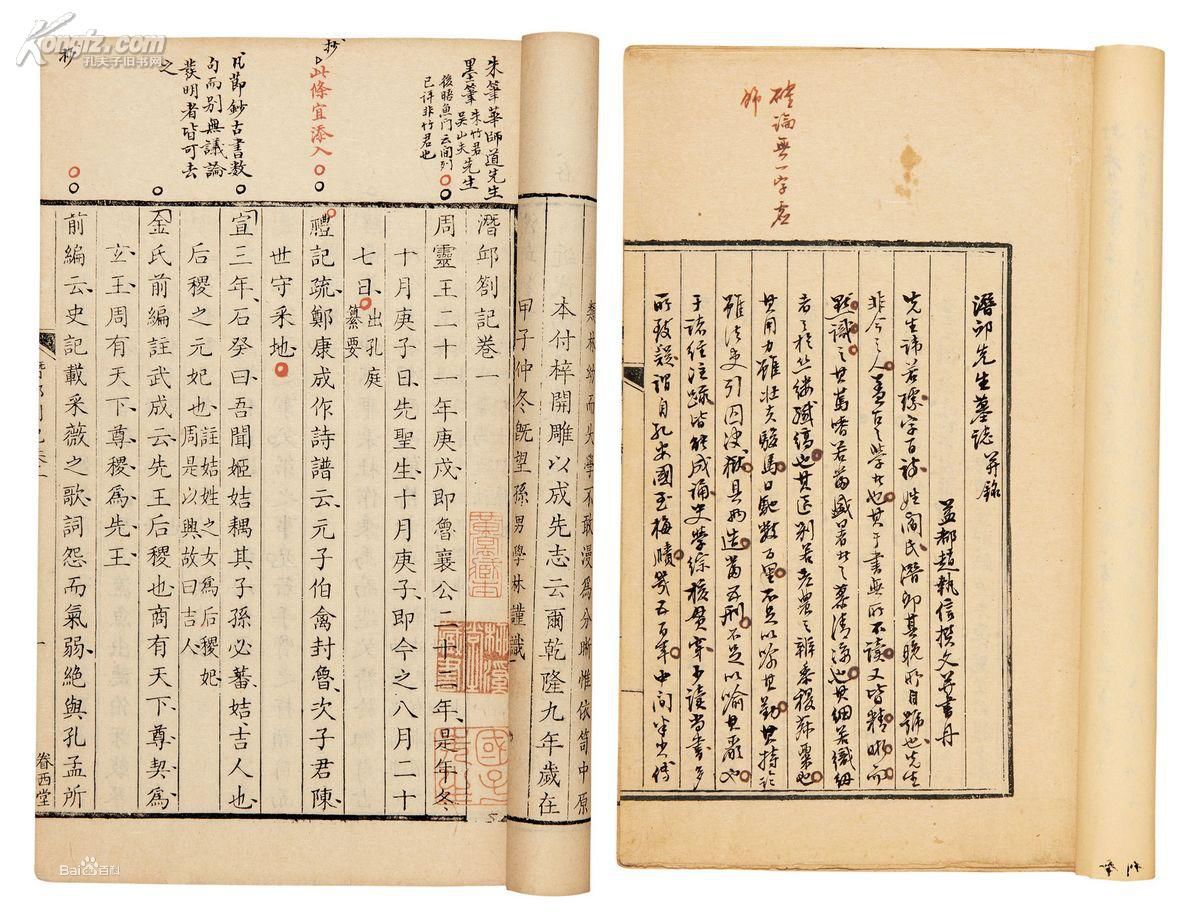 Kongfz.com
孔夫子旧书网
朱筆華師道先生
墨筆朱竹君先生
吳山夫
後晤魚門云間列
已評非竹君也
抄
此條宜添入
凡節鈔古書數
句而别無議論
發明者皆可去
之
抄
本付梓開雕以成先志云爾乾隆九年歲在
甲子仲冬既望孫男學林謹識
潛邱劄記卷一
周靈王二十一年庚戌即魯襄公二十二年是年冬
十月庚子日先聖生十月庚子即今之八月二十
七日出孔庭纂要
禮記疏鄭康成作詩譜云元子伯禽封魯次子君陳
世守采地
宣三年石癸曰吾聞姬姞耦其子孫必蕃姞吉人也
后稷之元妃也註姞姓之女為后稷妃周是以興故曰吉人
金氏前編註武成云先王后稷也商有天下尊契為
玄王周有天下尊稷為先王
前編云史記載采薇之歌詞怨而氣弱絶與孔孟所
一
眷西堂
Bai百科
確論無一字虛
飾
潛邱先生墓誌并銘
益都趙執信撰文并書丹
先生諱若璩字百詩姓閻氏潛邱其晚所自號也先生
非今之人蓋古之學者也其于書無所不讀又皆精晰而
默識之其篤嗜若當盛暑者之慕清涼也其細若織紉
者之於絲縷縞也其區别若老農之辨黍稷菽粟也
其用力雖壯夫駿馬日馳數百里不足以喻其勤其持論
雖法吏引囚決獄具兩造當五刑不足以喻其嚴也
于諸經注疏皆能成誦史學綜核貫穿少讀尚書多
所致疑謂自孔安國至梅賾幾五百年中間半出傅